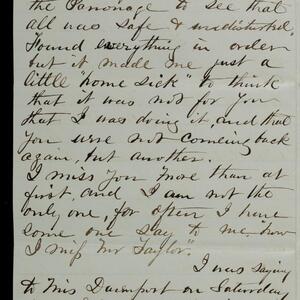 the Parsonage to see that
all was safe & undisturbed.
Found everything in order
but it made me just a
little "home sick" to think
that it was not for you
that I was doing it, and that
you were not comeing back
again, but another.
I miss you more than at
first, and, I am not the
only one, for often I have
some one say to me, how
I miss Mr Taylor".
I was saying
to Miss Davenport on Saturday